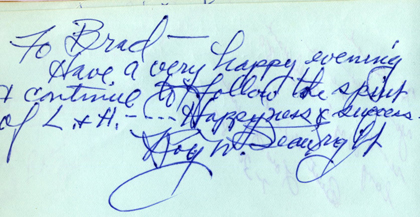 To Brad—
Have a very happy evening
& continue to follow the spirit
of L. & H. ---- Happyness & success.
Roy W. Seawright